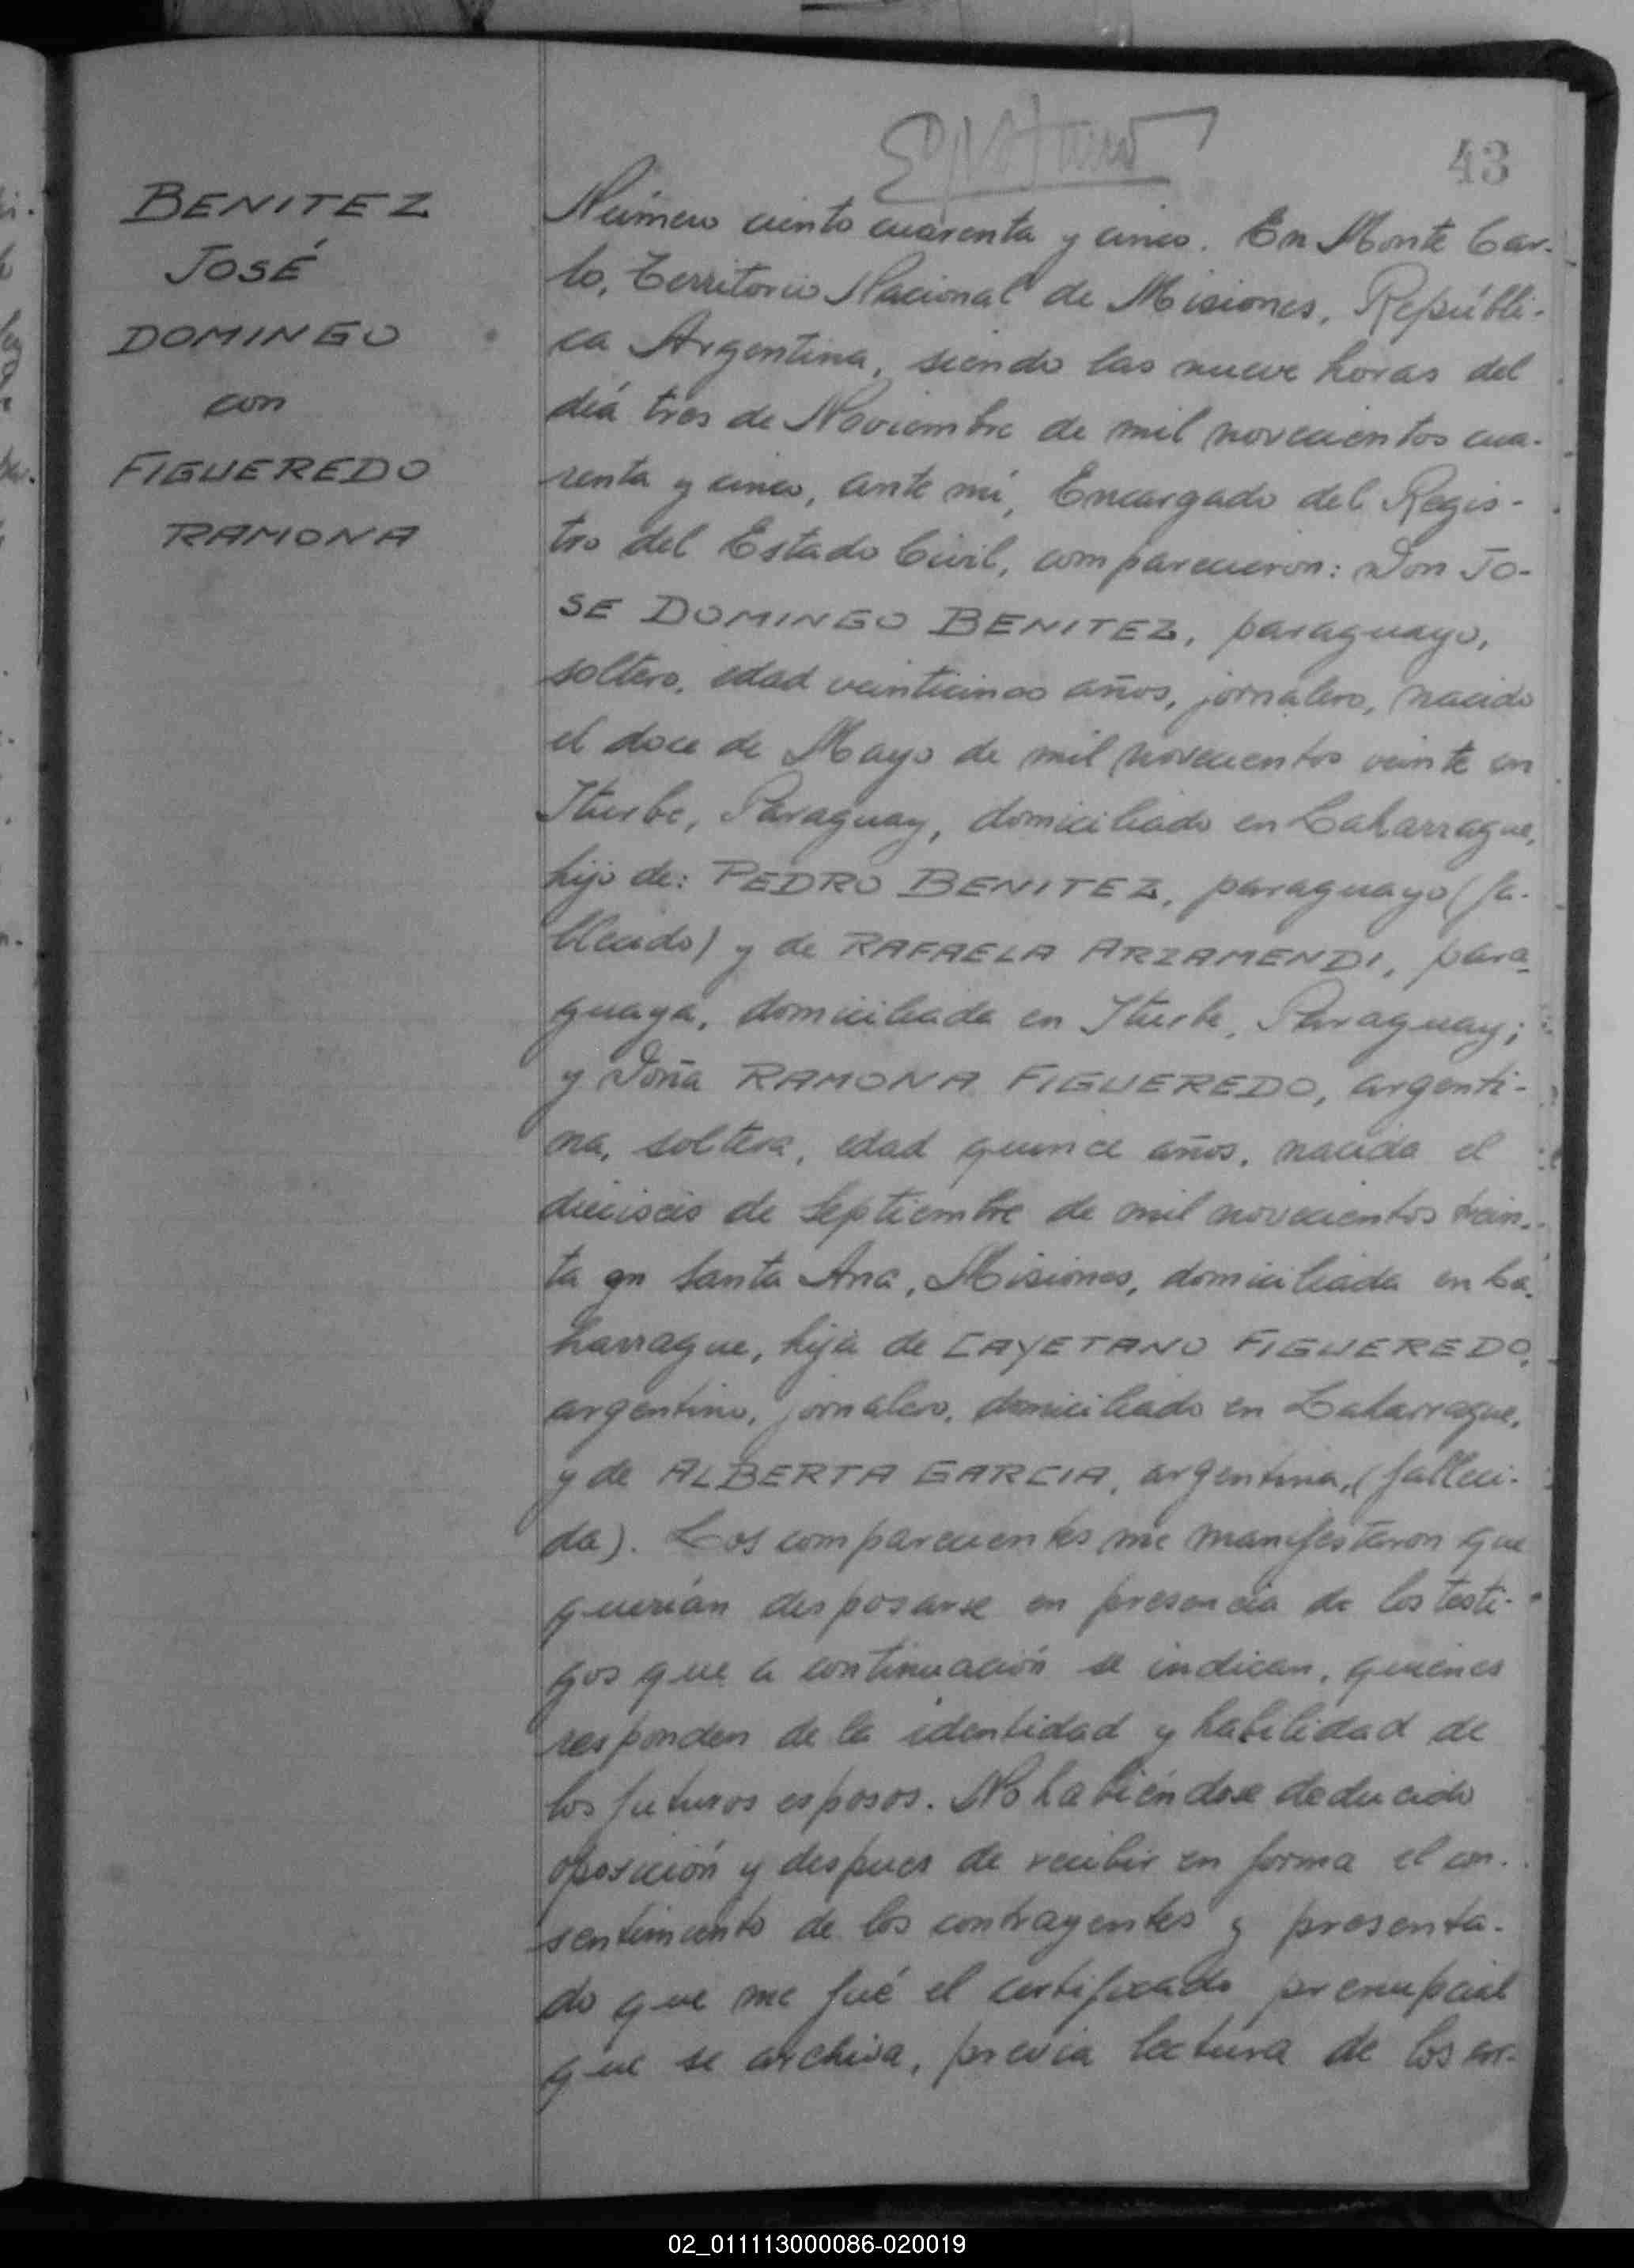 43
BENITEZ
JOSÉ
DOMINGO
con
FIGUEREDO
RAMONA
Número ciento cuarenta y cinco. En Monte Car-
lo, Territorio Nacional de Misiones, Repúbli-
ca Argentina, siendo las nueve horas del
día tres de Noviembre de mil novecientos cua-
renta y cinco, ante mí, Encargado del Regis-
tro del Estado Civil, comparecieron: Don JO-
SE DOMINGO BENITEZ, paraguayo,
soltero, edad veinticinco años, jornalero, nacido
el doce de Mayo de mil novecientos veinte en
Iturbe, Paraguay, domiciliado en Laharrague,
hijo de: PEDRO BENITEZ, paraguayo (fa-
llecido) y de RAFAELA ARZAMENDI, para-
guaya, domiciliada en Iturbe, Paraguay;
y Doña RAMONA FIGUEREDO, argenti-
na, soltera, edad quince años, nacida el
dieciseis de Septiembre de mil novecientos trein-
ta en Santa Ana, Misiones, domiciliada en La-
harrague, hija de CAYETANO FIGUEREDO,
argentino, jornalero, domiciliado en Laharrague,
y de ALBERTA GARCIA, argentina, (falleci-
da). Los comparecientes me manifestaron que
querían desposarse en presencia de los testi-
gos que a continuación se indican, quienes
responden de la identidad y habilidad de
los futuros esposos. No habiéndose deducido
oposición y despues de recibir en forma el con-
sentimiento de los contrayentes y presenta-
do que me fué el certificado prenupcial
que se archiva, previa lectura de los ar-
02_011113000086-020019